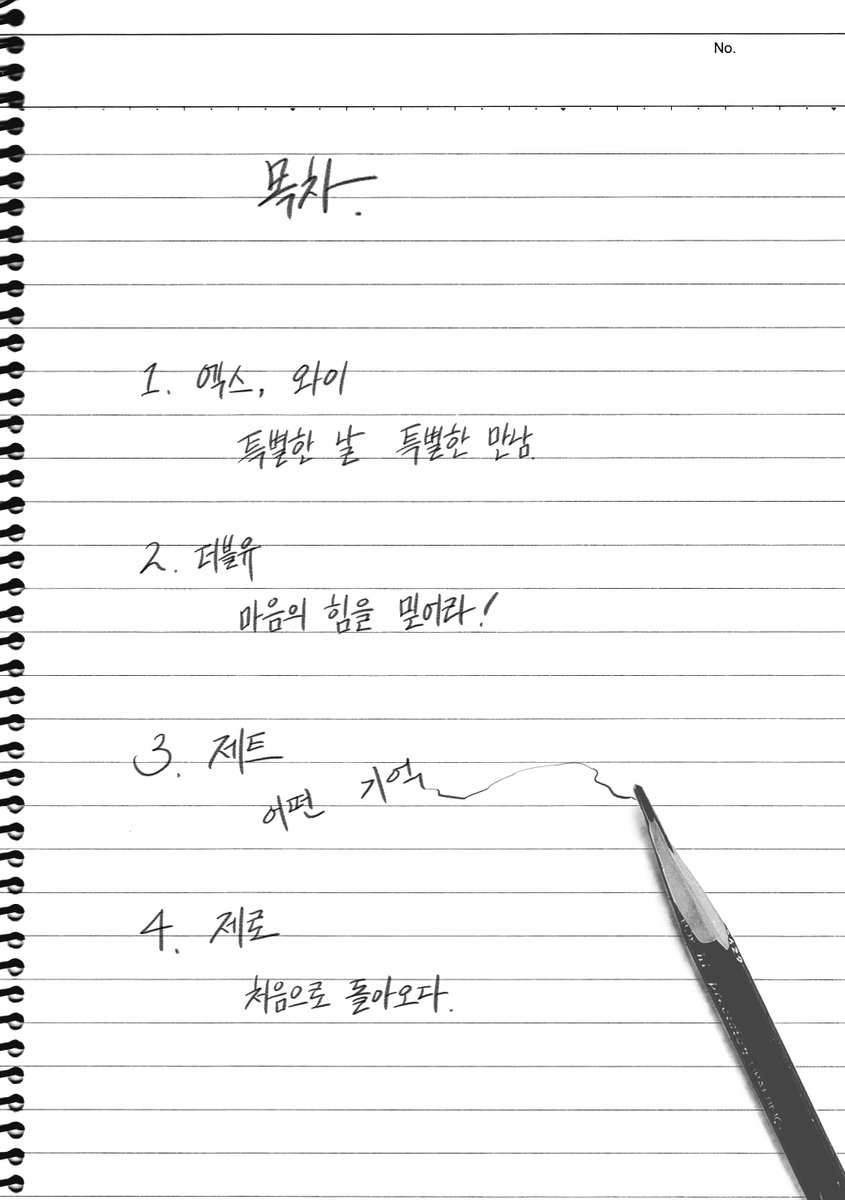 No.
목차.
1. 엑스, 와이
특별한 날 특별한 만남.
2. 더블유
마음의 힘을 믿어라!
3. 제트
어떤 기억
4. 제로
처음으로 돌아오다.